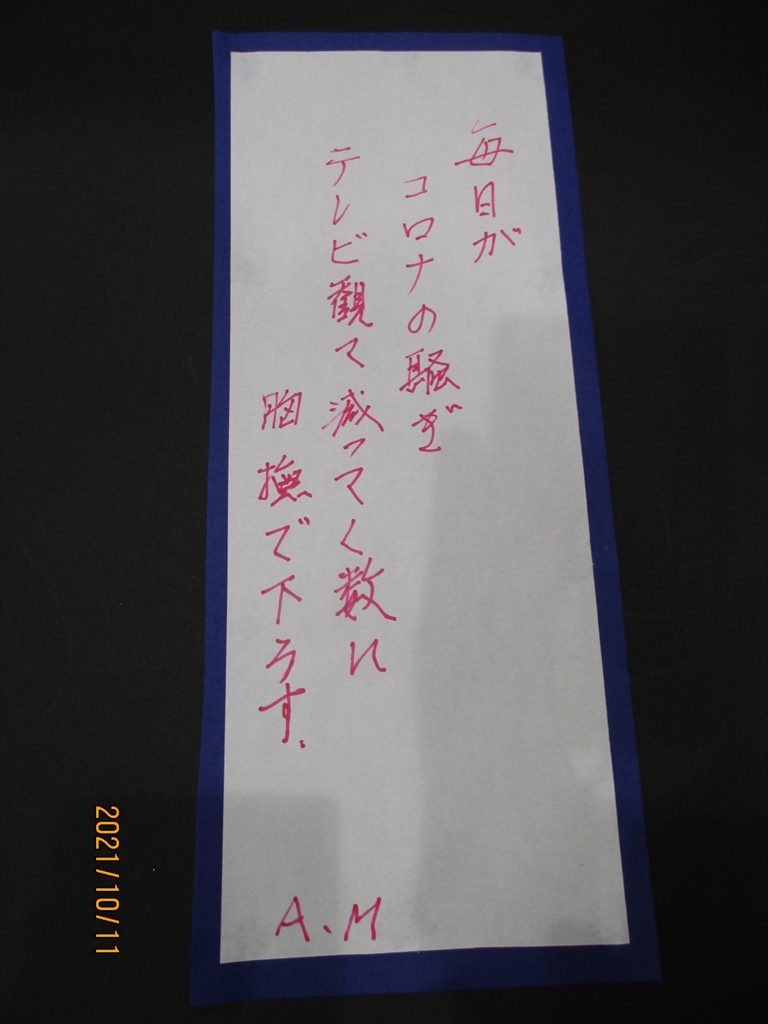 毎日が
コロナの騒ぎ
テレビ観て減ってく数に
胸撫で下ろす.
A.M
2021/10/11